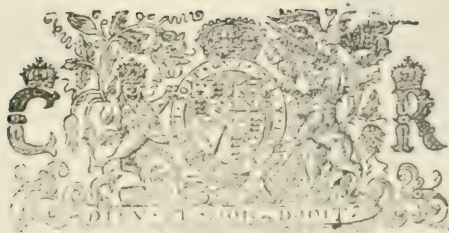 C R
DIEV ET MON DROIT